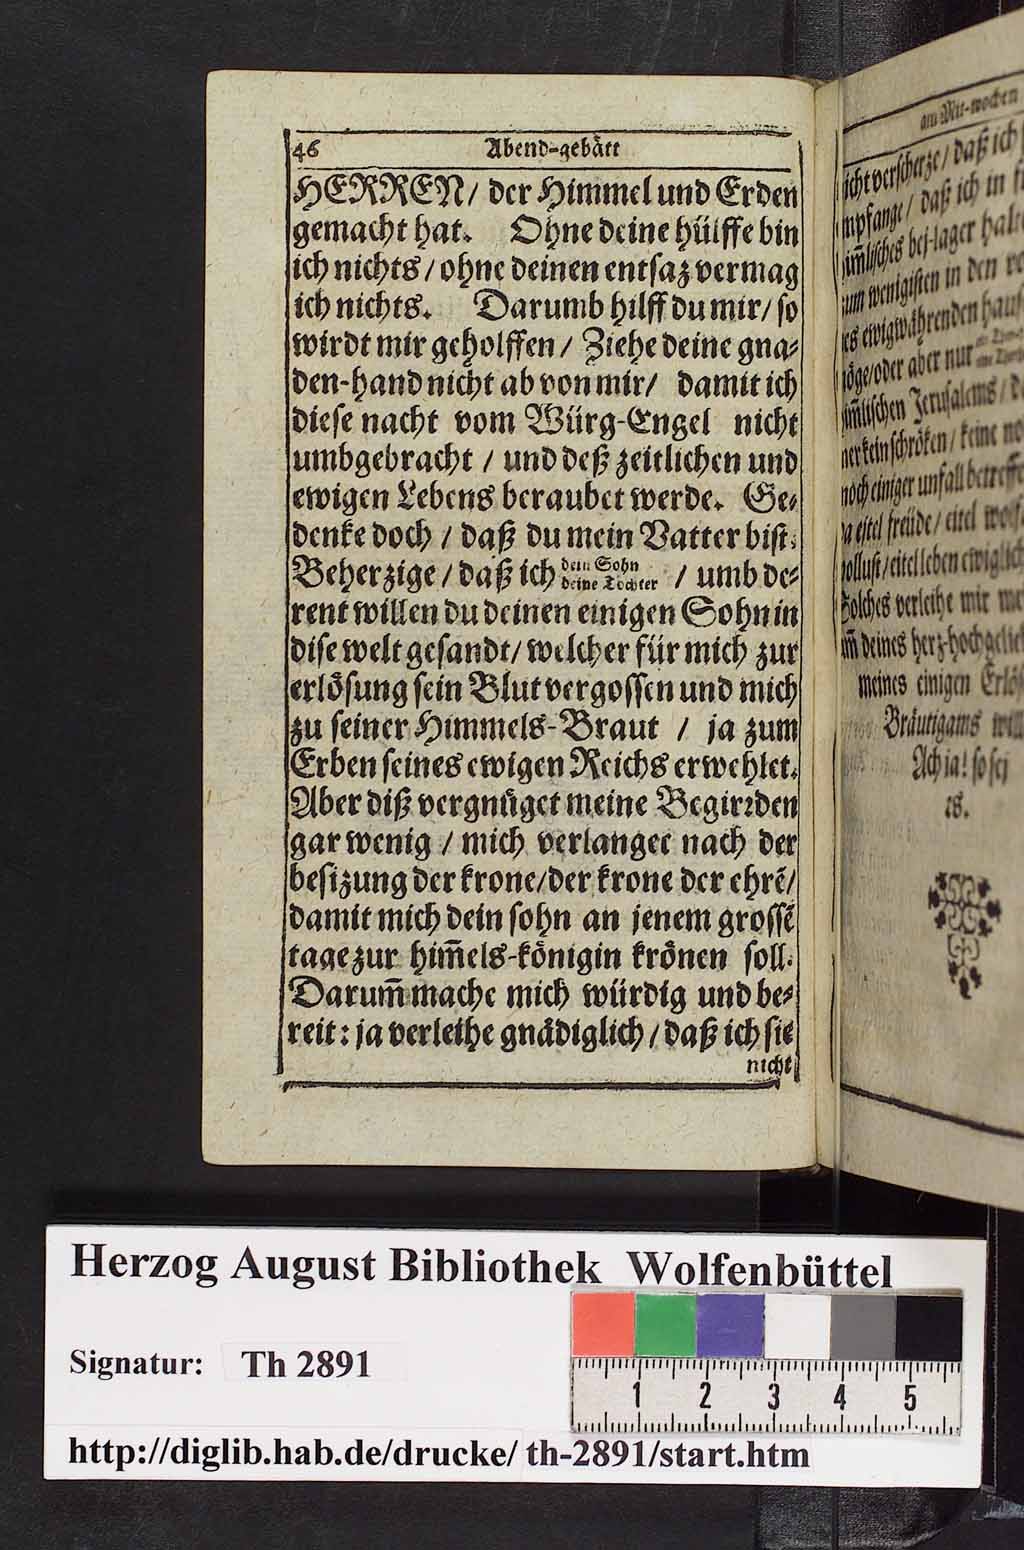 46 Abend-gebätt
HERREN/ der Himmel und Erden
gemacht hat. Ohne deine hülffe bin
ich nichts/ ohne deinen entsaz vermag
ich nichts. Darumb hilff du mir/ so
wirdt mir geholffen/ Ziehe deine gna-
den-hand nicht ab von mir/ damit ich
diese nacht vom Würg-Engel nicht
umbgebracht / und deß zeitlichen und
ewigen Lebens beraubet werde. Ge-
denke doch / daß du mein Vatter bist.
Beherzige / daß ich dein Sohn / umb de-
deine Tochter
rent willen du deinen einigen Sohn in
dise welt gesandt/ welcher für mich zur
erlösung sein Blut vergossen und mich
zu seiner Himmels-Braut / ja zum
Erben seines ewigen Reichs erwehlet.
Aber diß vergnüget meine Begirꝛden
gar wenig / mich verlanget nach der
besizung der krone/ der krone der ehrē/
damit mich dein sohn an jenem grossē
tage zur him̄els-königin krönen soll.
Darum̄ mache mich würdig und be-
reit: ja verleihe gnädiglich/ daß ich sie
nicht
am Mit-wochen
icht verscherze/ daß ich
mpfange/ daß ich in
im̄lisches bej-lager
um wenigisten in den
es ewigwährenden
öge/ oder aber nur
im̄lischen Jerusalems/
ner kein schröken/ keine
noch einiger unfall
a eitel freüde/ eitel
ollust/ eitel leben
Solches verleihe mir
um̄ deines
meines einigen
Bräutigams
Ach ja! so sej
es.
Herzog August Bibliothek Wolfenbüttel
Signatur: Th 2891
1 2 3 4 5
http://diglib.hab.de/drucke/ th-2891/start.htm